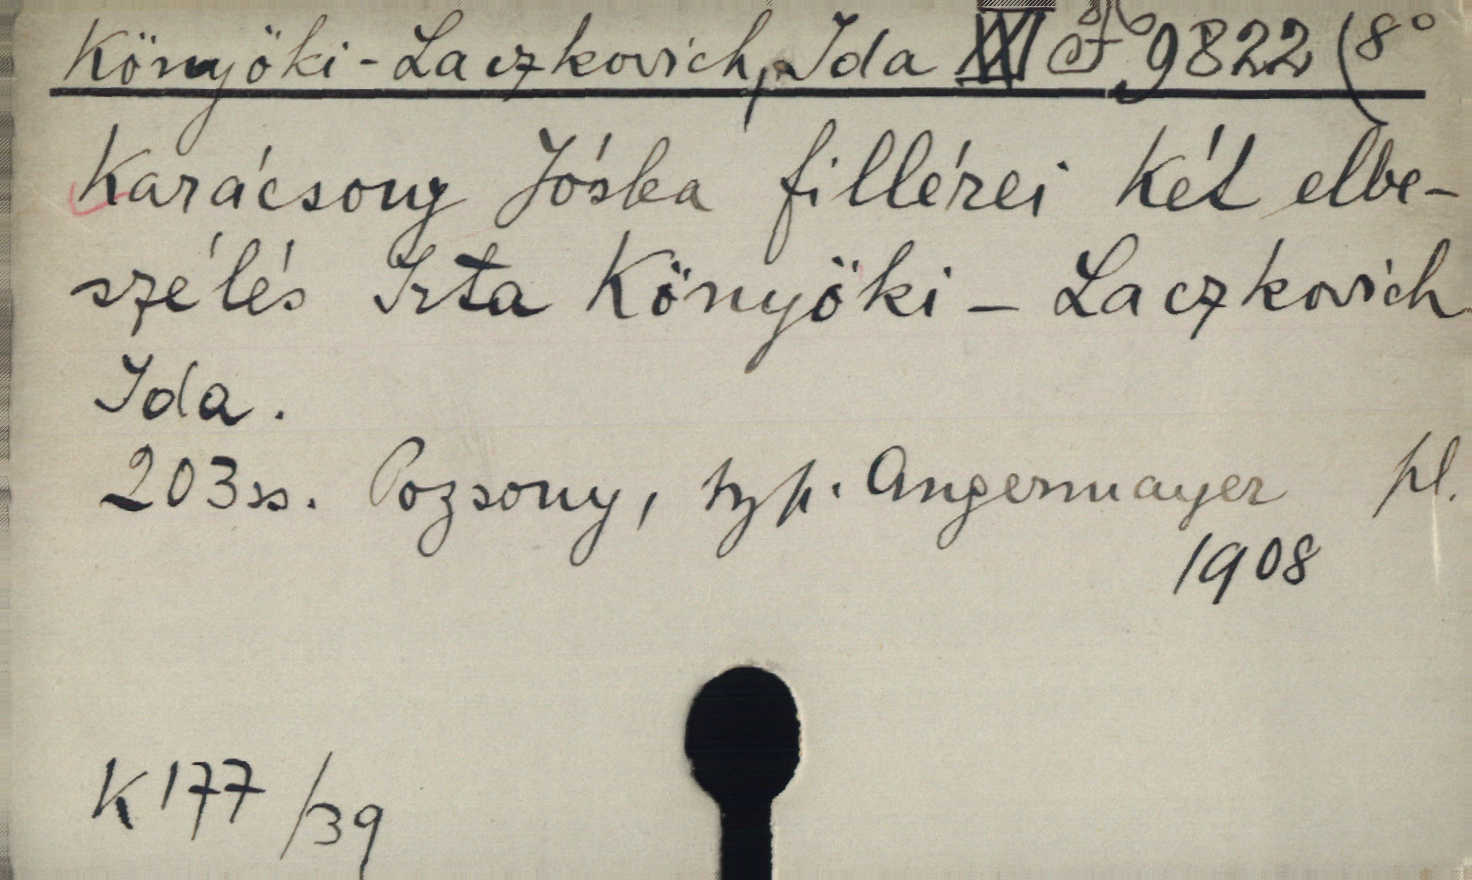 Könyöki-Laczkovich, Ida 9822 (8°
Karácsony Jóska fillérei Két elbe-
szélés Irta Könyöki - Laczkovich
Ida.
203 ss. Pozsony, typ. Angermayer pl.
1908
K 177 /39